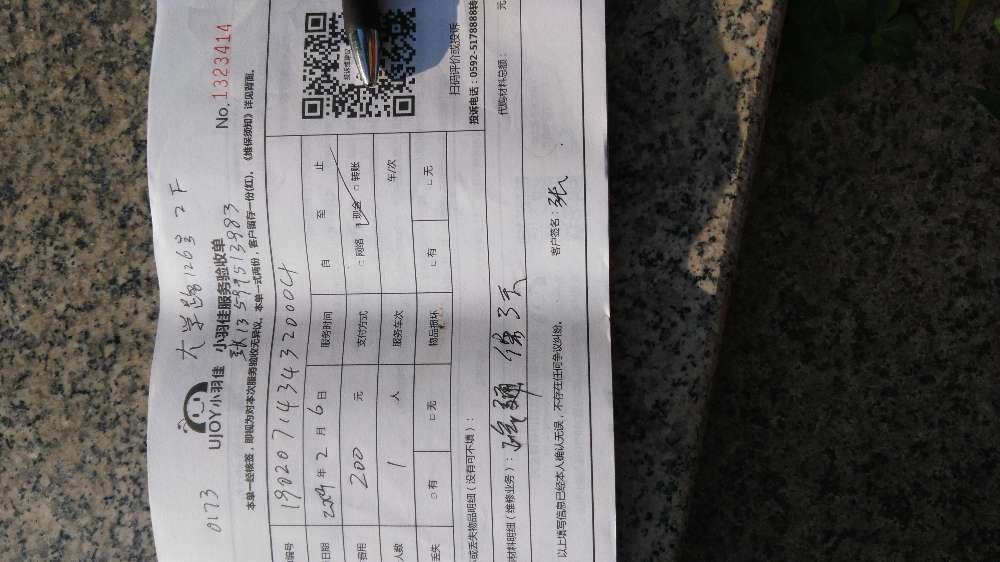 0173 大学路126号 2F
UJOY小羽佳 小羽佳服务验收单 No.1323414
13599513983
本单一经核签，即视为对本次服务验收无异议。本单一式两份，客户留存一份(红)，《维保须知》详见背面。
编号 190207143434320004
日期 年 2 月 6 日 服务时间 自 至 止
费用 200 元 支付方式 □网络 □现金 □转账
人数 1 人 服务车次 车/次
丢失 □有 □无 物品损坏 □有 □无
扫码评价或投诉
投诉电话：0592-5178888转
或丢失物品明细（没有可不填）：
材料明细（维修业务）： 代购材料总额： 元
以上填写信息已经本人确认无误，不存在任何争议纠纷。 客户签名：张